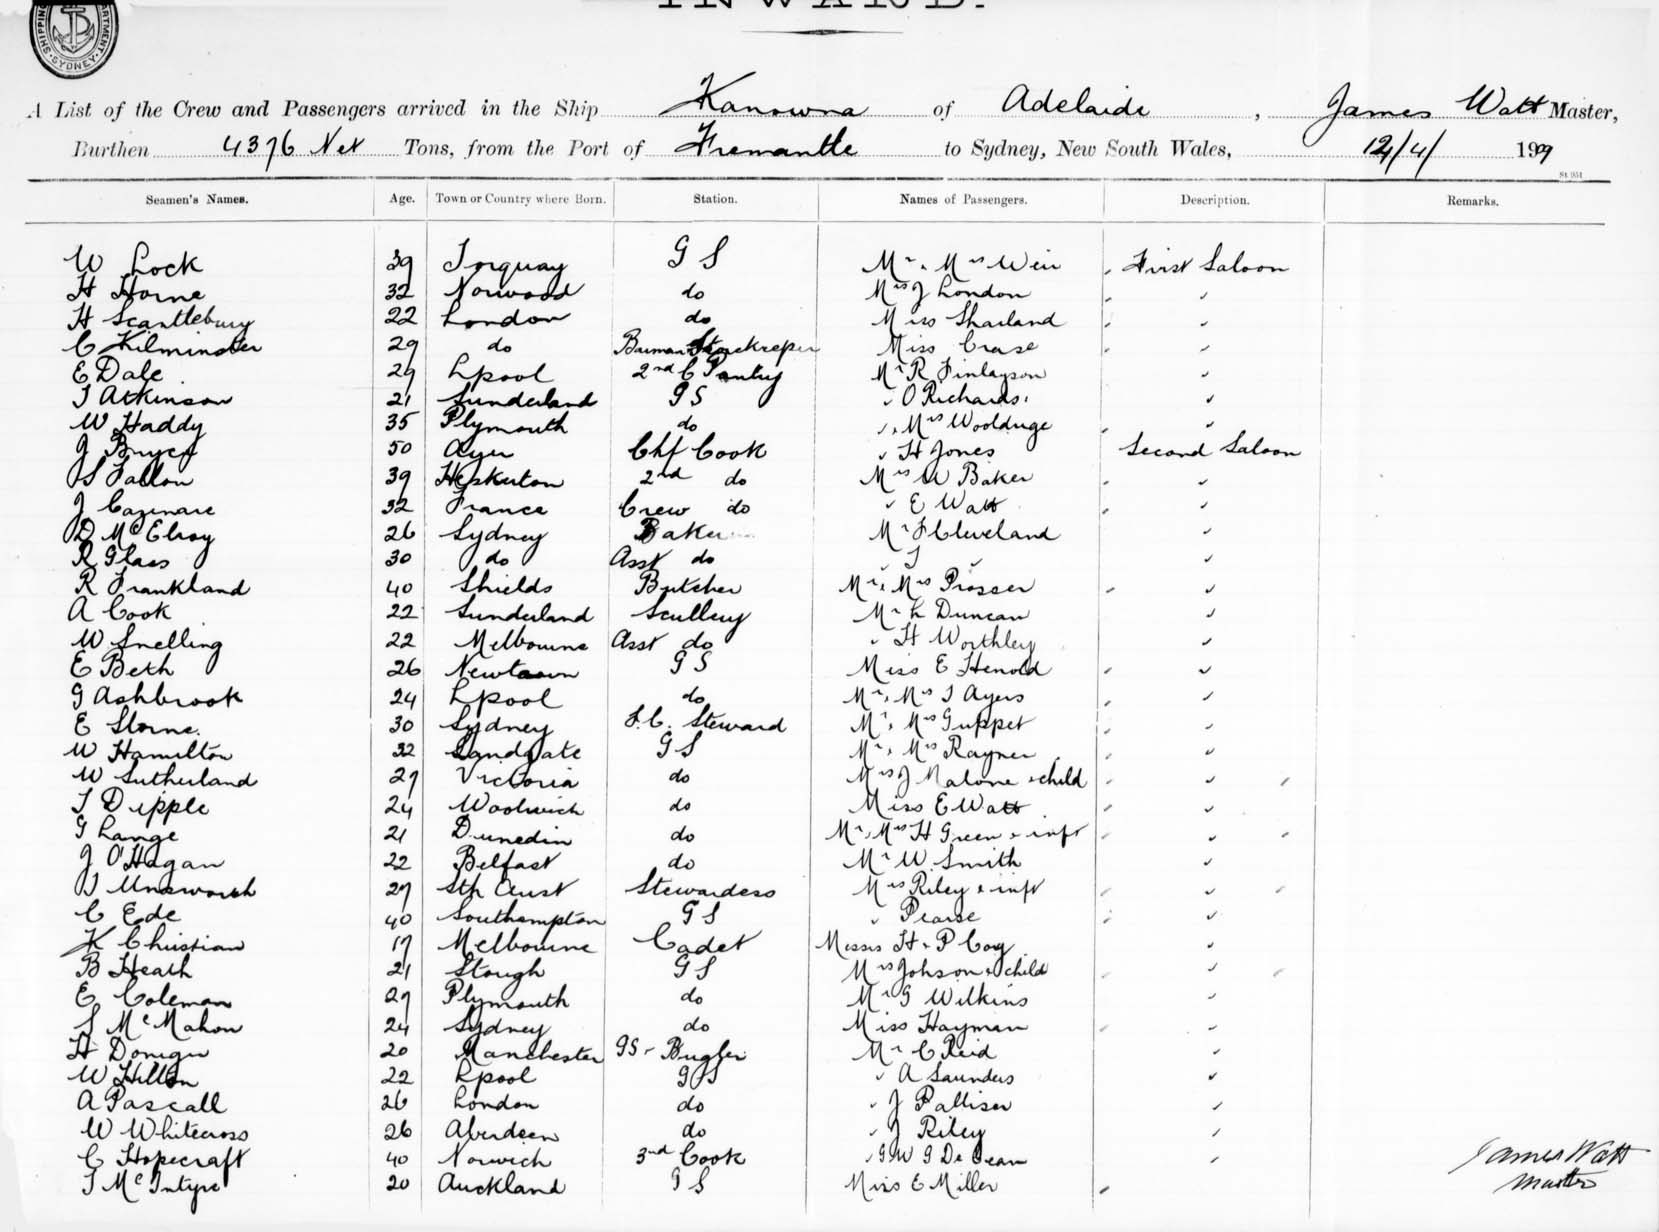 INWARD.
SHIPPING DEPARTMENT · SYDNEY ·
A List of the Crew and Passengers arrived in the Ship Kanowna of Adelaide, James Watt Master,
Burthen 4376 Net Tons, from the Port of Fremantle to Sydney, New South Wales, 12/4/ 1909
St 951
Seamen's Names. Age. Town or Country where Born. Station. Names of Passengers. Description. Remarks.
W Lock 39 Torquay G S Mr & Mrs Weir First Saloon
H Horne 32 Norwood do Mrs J London "
H Scantlebury 22 London do Miss Sharland "
C Kilminster 29 do Barman Storekeeper Miss Crase "
E Dale 29 Lpool 2nd C Pantry Mr R Finlayson "
J Atkinson 21 Sunderland G S " O Richards "
W Haddy 35 Plymouth do " & Mrs Woolduge "
J Bryce 50 Ayr Chf Cook " H Jones Second Saloon
S Fallon 39 2nd do Mrs W Baker "
J Cazenare 32 France Crew do " E Watt "
D McElroy 26 Sydney Baker Mr F Cleveland "
R Glass 30 do Asst do " J " "
R Frankland 40 Shields Butcher Mr & Mrs Prosser "
A Cook 22 Sunderland Scullery Mr L Duncan "
W Snelling 22 Melbourne Asst do " H Worthley "
E Beth 26 Newtown G S Miss E Henold "
G Ashbrook 24 Lpool do Mr & Mrs J Ayers "
E Storne. 30 Sydney S.C. Steward Mr & Mrs Guppet "
W Hamilton 32 Sandgate G S Mr & Mrs Rayner "
W Sutherland 29 Victoria do Mrs J Malone & child "
J Dipple 24 Woolwich do Miss E Watt "
G Lange 21 Dunedin do Mr & Mrs H Green & inft "
J O'Hagan 22 Belfast do Mr W Smith "
J Unsworth 29 Sth Aust Stewardess Mrs Riley & inft "
C Ede 40 Southampton G S " Pearse "
K Christian 17 Melbourne Cadet Messrs H & P Coy "
B Heath 21 Slough G S Mrs Johson & child "
E Coleman 29 Plymouth do Mr G Wilkins "
S McMahon 24 Sydney do Miss Hayman "
H Donigu 20 Manchester GS - Bugler Mr C Reid "
W Hilton 22 Lpool G S " A Saunders "
A Pascall 26 London do " J Palliser "
W Whitecross 26 Aberdeen do " J Riley "
C Hopecraft 40 Norwich 3rd Cook " G W G De "
J McIntyre 20 Auckland G S Miss E Miller
James Watt
Master